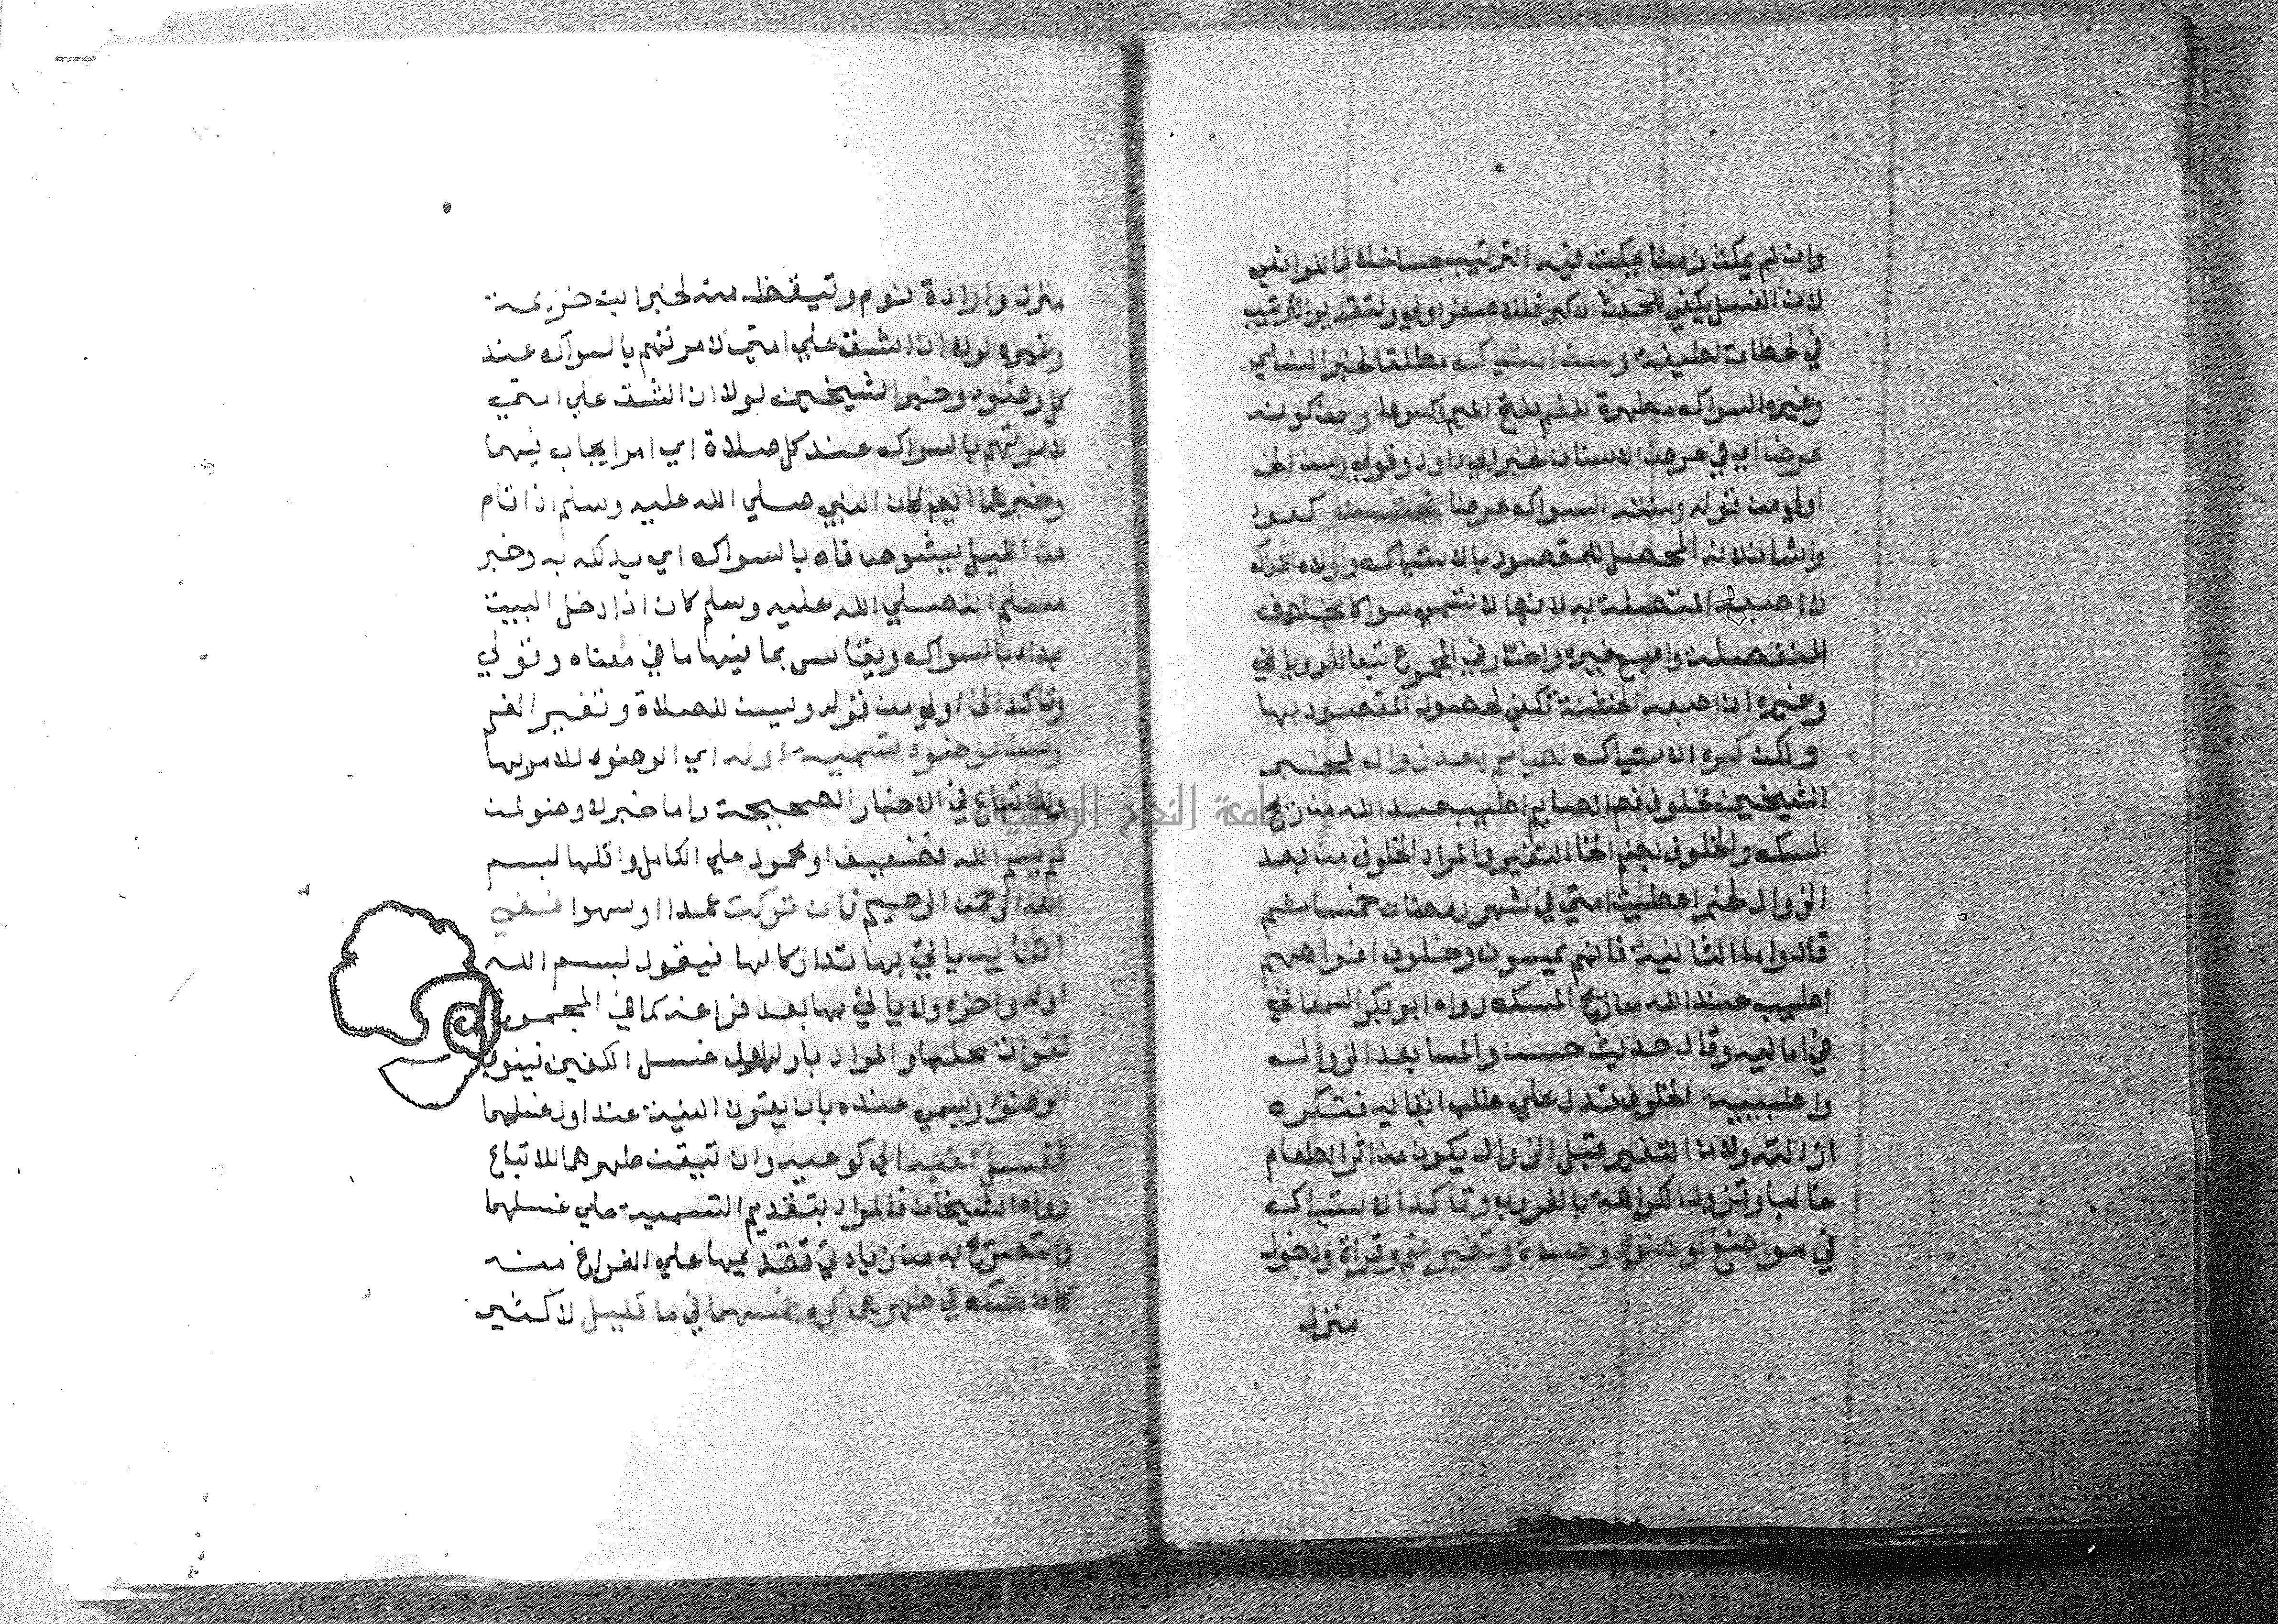 وان لم يمكث زمنا يمكث فيه الترتيب حسا خلافا للرافعي
لان الغسل يكفي للحدث الاكبر فللاصغر اولي ولتقدير الترتيب
في لحظات لطيفة وسن استياك مطلقا لخبر النساي
وغيره السواك مطهرة للفم بفتح الميم وكسرها وسن كونه
عرضا اي في عرض الاسنان لخبر ابي داود وقولي وسن الخ
اولي من قوله وسننه السواك عرضا بخشن كعود
واشنان لانه المحصل للمقصود بالاستياك واولاه الاراك
لا اصبعه المتصلة به لانها لا تسمي سواكا بخلاف
المنفصلة واصبع غيره واختار في المجموع تبعا للروياني
وغيره ان اصبعه الخشنة تكفي لحصول المقصود بها
ولكن كره الاستياك لصايم بعد زوال لخبر
الشيخين لخلوف فم الصايم اطيب عند الله من ريح
المسك والخلوف بضم الخا التغير والمراد الخلوف من بعد
الزوال لخبر اعطيت امتي في شهر رمضان خمسا ثم
قال واما الثانية فانهم يمسون وخلوف افواههم
اطيب عند الله من ريح المسك رواه ابو بكر السمعاني
في اماليه وقال حديث حسن والمسا بعد الزوال
واطيبية الخلوف تدل علي طلب ابقايه فتكره
ازالته ولان التغير قبل الزوال يكون من اثر الطعام
غالبا وتزول الكراهة بالغروب وتاكد الاستياك
في مواضع كوضوء وصلاة وتغير فم وقراة ودخول
منزل
منزل وارادة نوم وتيقظ منه لخبر ابن خزيمة
وغيره لولا ان اشق علي امتي لامرتهم بالسواك عند
كل وضوء وخبر الشيخين لولا ان اشق علي امتي
لامرتهم بالسواك عند كل صلاة اي امر ايجاب فيهما
وخبرهما ايضا كان النبي صلي الله عليه وسلم اذا قام
من الليل يشوص فاه بالسواك اي يدلكه به وخبر
مسلم انه صلي الله عليه وسلم كان اذا دخل البيت
بداء بالسواك ويقاس بما فيها ما في معناه وقولي
وتاكد الخ اولي من قوله وليسن للصلاة وتغير الفم
وسن لوضوء تسمية اوله اي الوضوء للامر بها
وللاتباع في الاخبار الصحيحة واما خبر لا وضو لمن
لم يسم الله فضعيف او محمول علي الكامل واقلها بسم
الله الرحمن الرحيم فان تركت عمدا او سهوا ففي
اثنايه ياتي بها تداركا لها فيقول بسم الله
اوله واخره ولا ياتي بها بعد فراغه كما في المجموع
لفوات محلها والمراد باوله اول غسل الكفين فينوي
الوضوء ويسمي عنده بان يقرن النية عند اول غسلهما
فغسل كفيه الي كوعيه وان تيقن طهرهما للاتباع
رواه الشيخان فالمراد بتقديم التسمية علي غسلهما
والتصريح به من زيادتي تقديمها علي الفراغ منه
كان شك في طهرهما كره غمسهما في ما قليل لا كثير
جامعة النجاح الوطنية